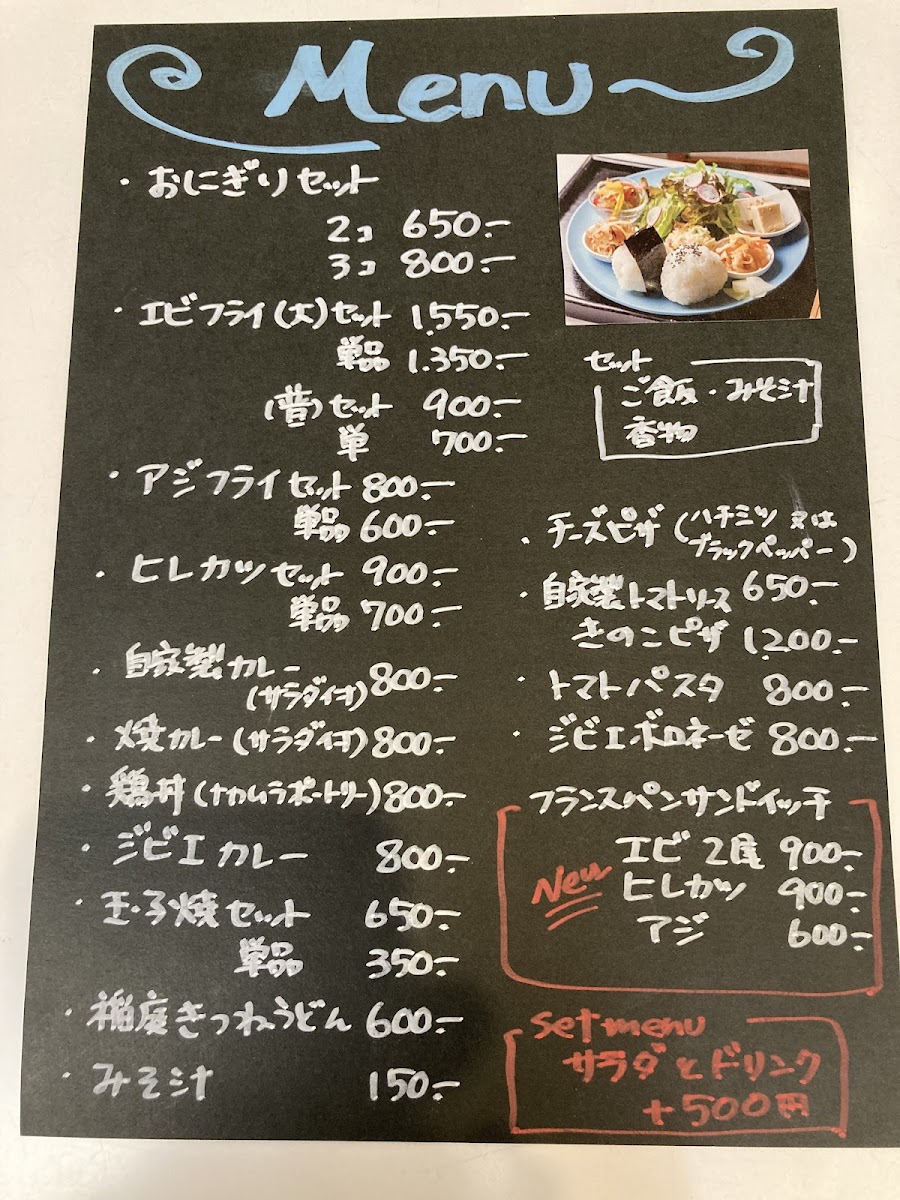 Menu
・おにぎりセット
2コ 650.-
3コ 800.-
・エビフライ(大)セット 1,550.-
単品 1,350.-
(普)セット 900.-
単 700.-
・アジフライセット 800.-
単品 600.-
・ヒレカツセット 900.-
単品 700.-
・自家製カレー
(サラダ付) 800.-
・焼カレー(サラダ付) 800.-
・鶏丼(ナカムラポートリー) 800.-
・ジビエカレー 800.-
・玉子焼セット 650.-
単品 350.-
・稲庭きつねうどん 600.-
・みそ汁 150.-
セット
ご飯・みそ汁
香物
・チーズピザ(ハチミツ又は
ブラックペッパー)
650.-
・自家製トマトソース
きのこピザ 1,200.-
・トマトパスタ 800.-
・ジビエボロネーゼ 800.-
フランスパンサンドイッチ
New
エビ2尾 900.-
ヒレカツ 900.-
アジ 600.-
set menu
サラダとドリンク
+500円